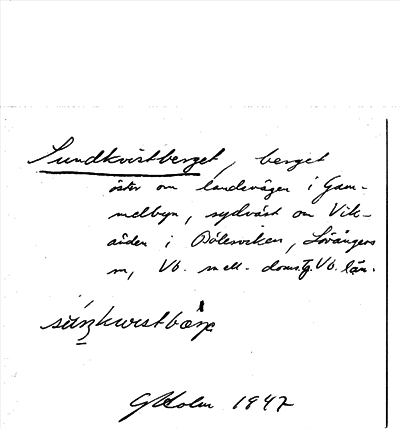 Sundkvistberget, berget
öster om landsvägen i Gam-
melbyn, sydväst om Vik-
åúden i Bölesviken, Lövångers
sn, Vb. mell. doms. tg. Vb. län.
GHolm 1947